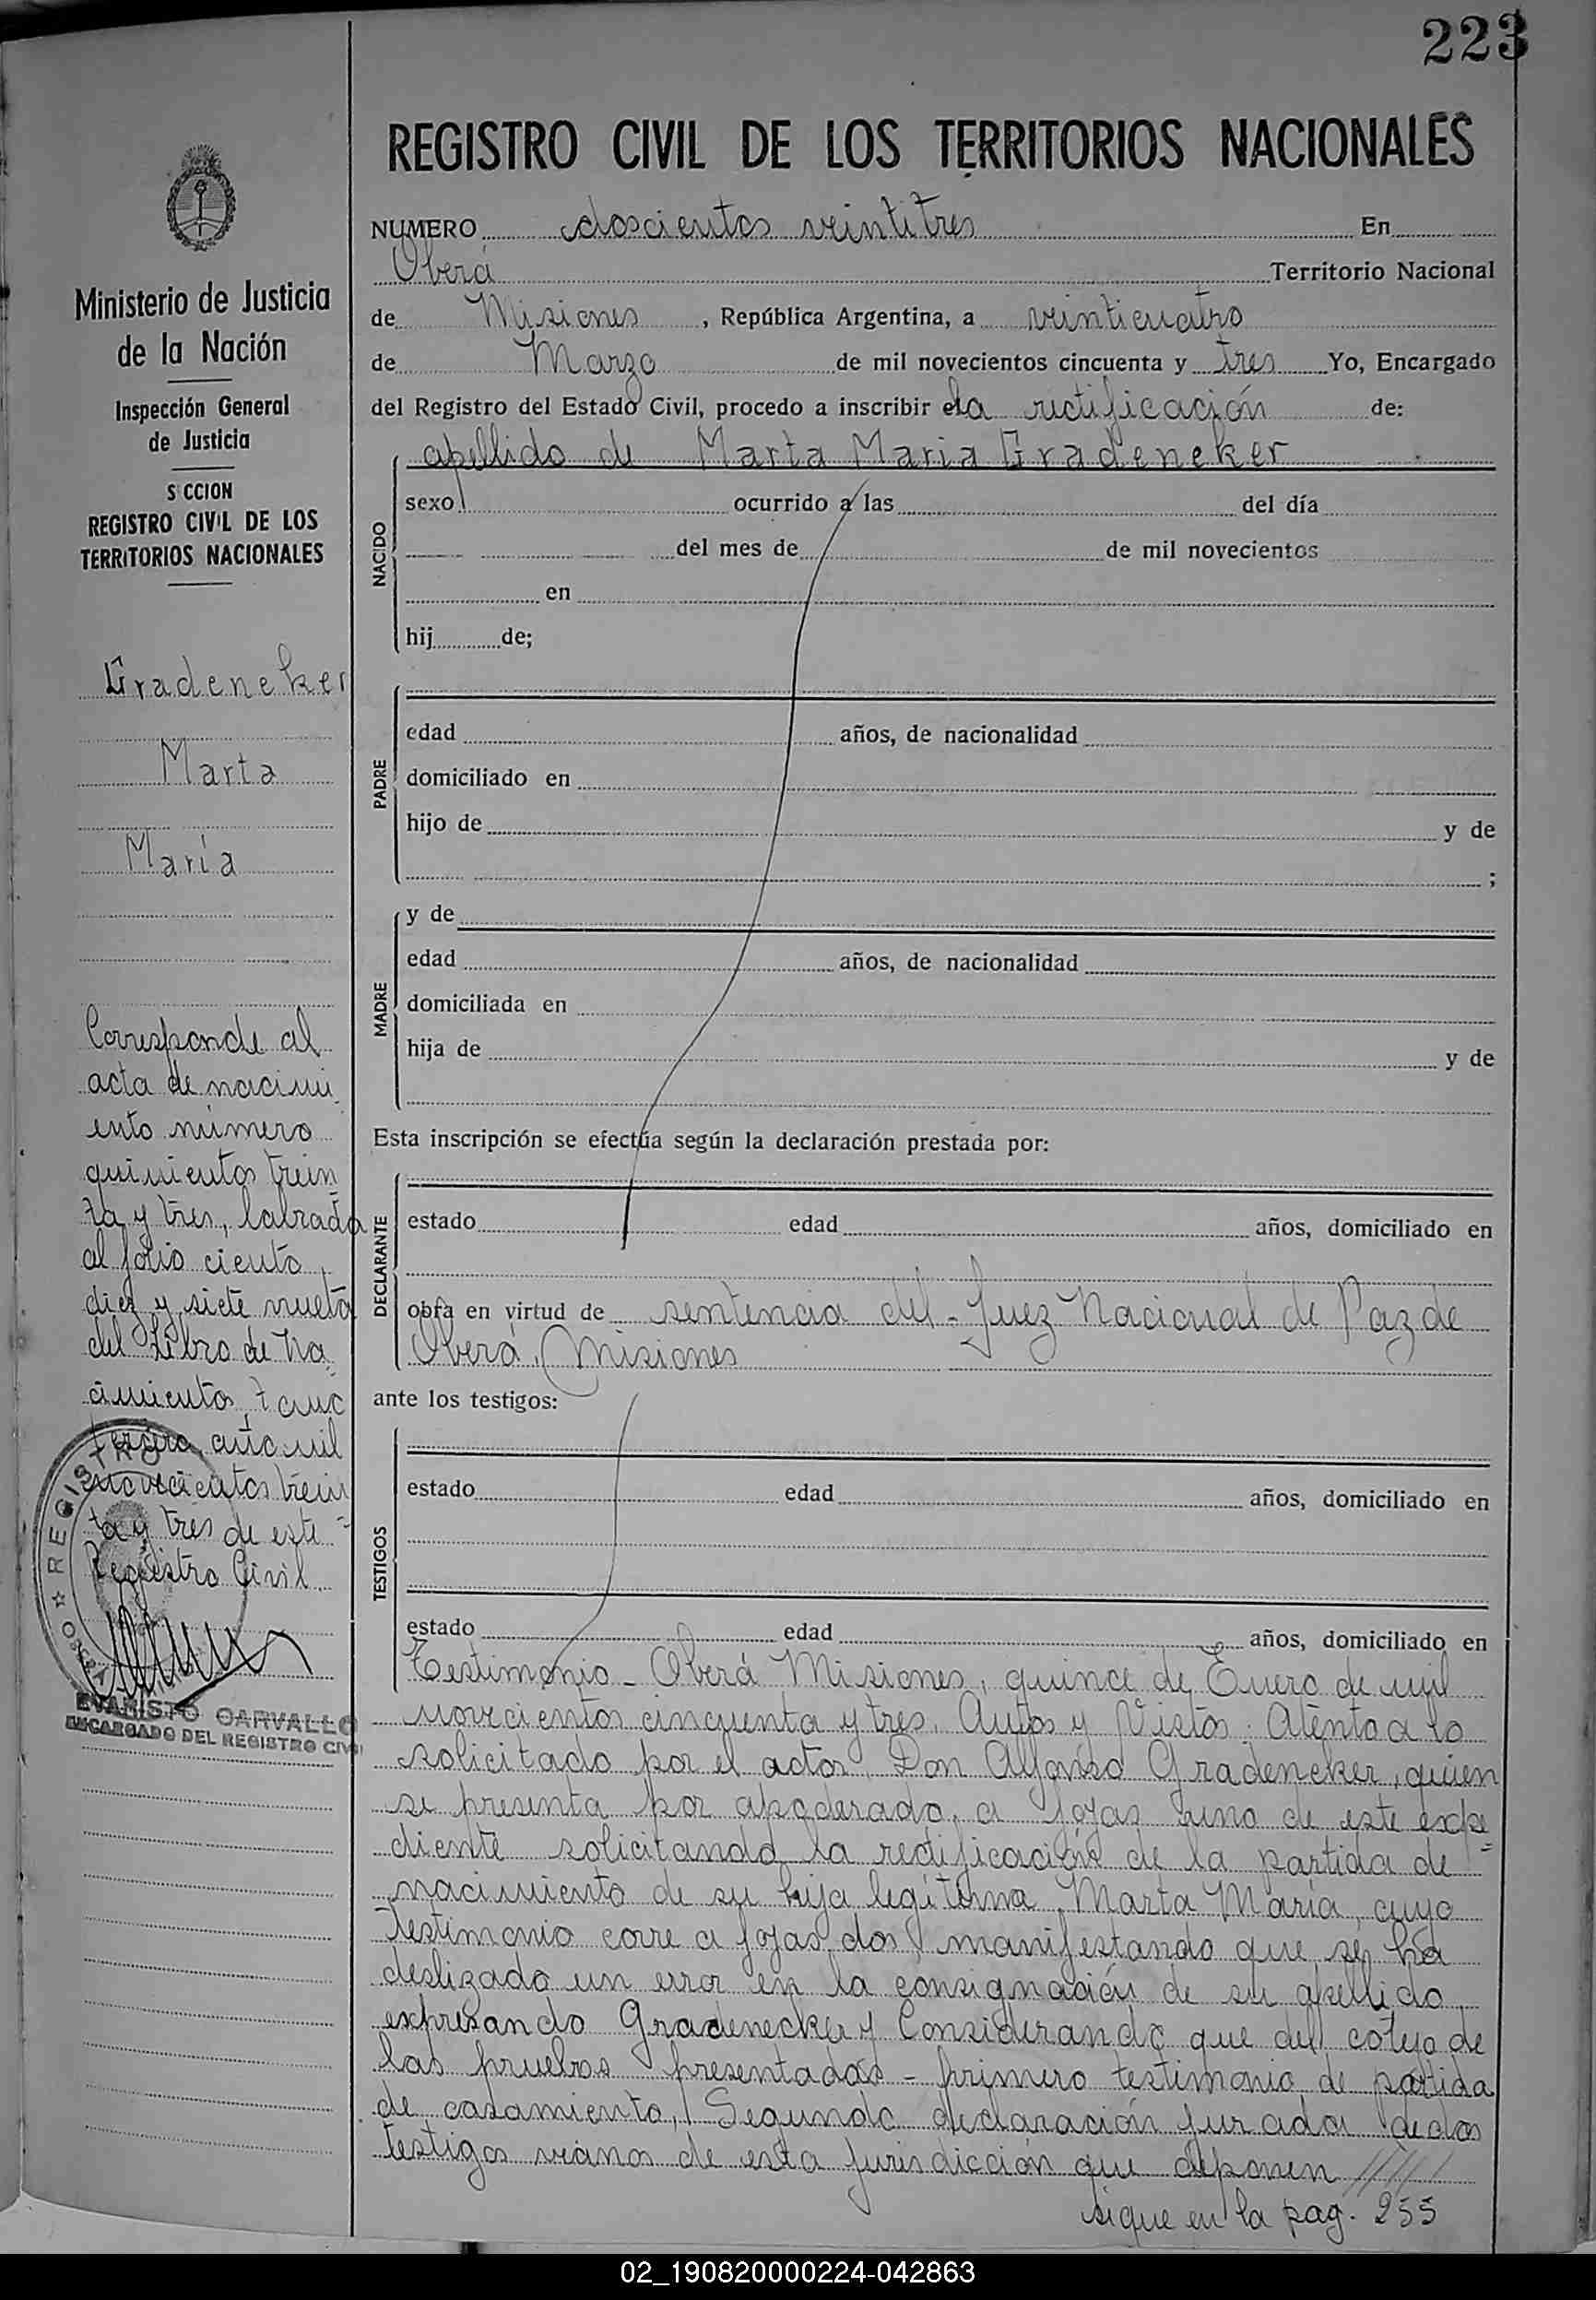 223
REGISTRO CIVIL DE LOS TERRITORIOS NACIONALES
NUMERO doscientos veintitres En
Oberá Territorio Nacional
de Misiones, República Argentina, a veinticuatro
de Marzo de mil novecientos cincuenta y tres Yo, Encargado
del Registro del Estado Civil, procedo a inscribir la rectificación de:
apellido de Marta Maria Gradeneker
NACIDO
sexo ocurrido a las del día
del mes de de mil novecientos
en
hij de;
PADRE
edad años, de nacionalidad
domiciliado en
hijo de y de
;
MADRE
y de
edad años, de nacionalidad
domiciliada en
hija de y de
Esta inscripción se efectúa según la declaración prestada por:
DECLARANTE
estado edad años, domiciliado en
obra en virtud de sentencia del - Juez Nacional de Paz de
Oberá, Misiones
ante los testigos:
TESTIGOS
estado edad años, domiciliado en
estado edad años, domiciliado en
Testimonio - Oberá Misiones, quince de Enero de mil
novecientos cincuenta y tres. Autos y Vistos: Atento a lo
solicitado por el actor Don Alfonso Gradeneker, quien
se presenta por apoderado, a fojas uno de este expe
diente solicitando la rectificación de la partida de
nacimiento de su hija legítima Marta María, cuyo
testimonio corre a fojas dos manifestando que se ha
deslizado un error en la consignación de su apellido,
expresando Gradenecker y Considerando que del cotejo de
las pruebas presentadas - primero testimonio de partida
de casamiento, Segundo declaración jurada de dos
testigos vecinos de esta jurisdicción que deponen /////
sigue en la pag. 255
Ministerio de Justicia
de la Nación
Inspección General
de Justicia
S CCION
REGISTRO CIVIL DE LOS
TERRITORIOS NACIONALES
Gradeneker
Marta
María
Corresponde al
acta de nacimi
ento número
quinientos trein
ta y tres, labrada
al folio ciento
diez y siete vuelta
del Libro de Na
cimientos, tomo
tercero, año mil
novecientos trein
ta y tres de este
Registro Civil.
REGISTRO
EVARISTO CARVALLO
ENCARGADO DEL REGISTRO CIVIL
02_190820000224-042863